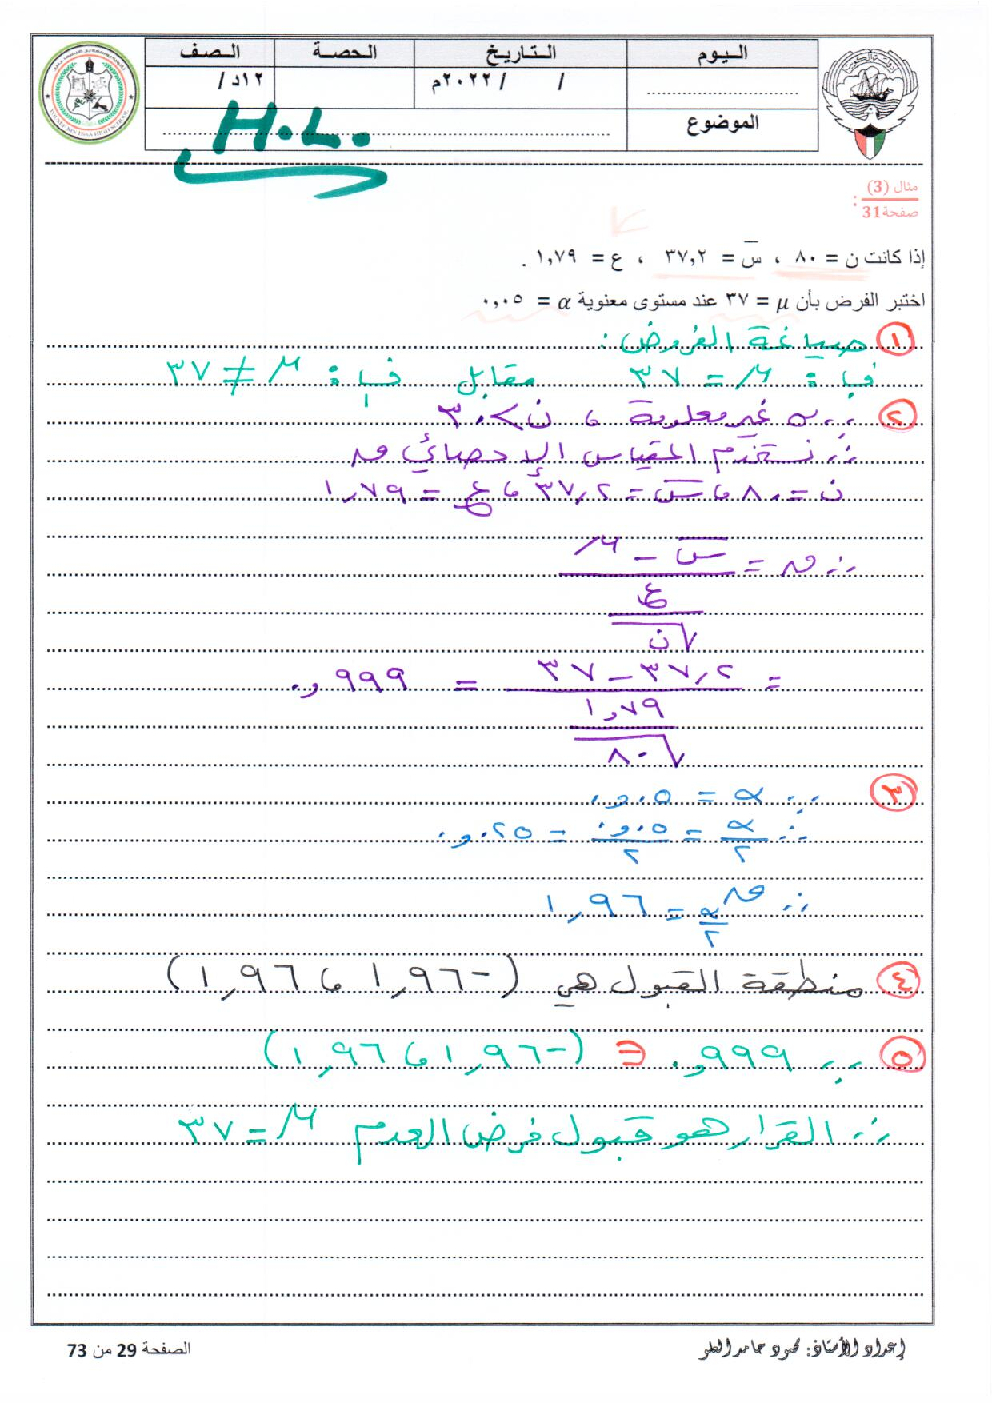 اليوم
التاريخ
الحصة
الصف
/ /٢٠٢٢م
١٢د /
الموضوع
H.L.
مثال (3)
صفحة 31 :
إذا كانت ن = ٨٠ ، س̅ = ٣٧,٢ ، ع = ١,٧٩ .
اختبر الفرض بأن μ = ٣٧ عند مستوى معنوية α = ٠,٠٥
١ صياغة الفروض :
ف. : μ = ٣٧ مقابل ف١ : μ ≠ ٣٧
٢ ∵ σ غير معلومة ، ن > ٣٠
∴ نستخدم المقياس الإحصائي ق
ن = ٨٠ ، س̅ = ٣٧,٢ ، ع = ١,٧٩
∴ ق = (س̅ - μ) / (ع / √ن)
= (٣٧,٢ - ٣٧) / (١,٧٩ / √٨٠) = ٠,٩٩٩
٣ ∵ α = ٠,٠٥
∴ α/٢ = ٠,٠٥/٢ = ٠,٠٢٥
∴ ق α/٢ = ١,٩٦
٤ منطقة القبول هي (-١,٩٦ ، ١,٩٦)
٥ ∵ ٠,٩٩٩ ∈ (-١,٩٦ ، ١,٩٦)
∴ القرار هو قبول فرض العدم μ = ٣٧
إعداد الأستاذ: محمود حامد العلو
الصفحة 29 من 73